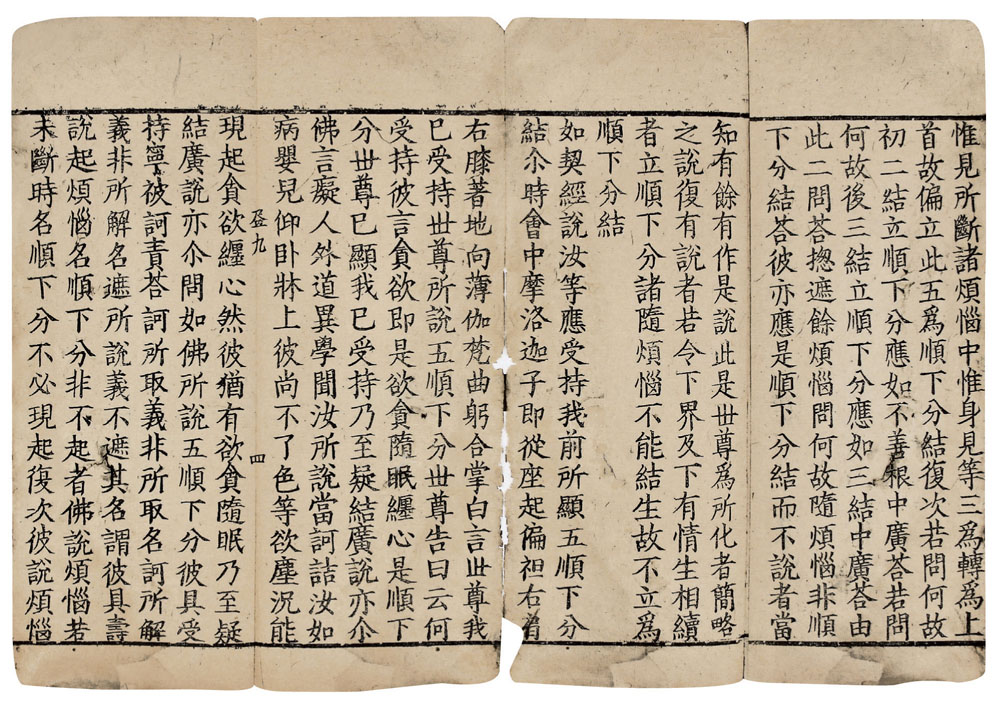 惟見所斷諸煩惱中惟身見等三為轉為上
首故偏立此五為順下分結復次若問何故
初二結立順下分應如不善根中廣荅若問
何故後三結立順下分應如三結中廣荅由
此二問荅揔遮餘煩惱問何故隨煩惱非順
下分結荅彼亦應是順下分結而不說者當
知有餘有作是說此是世尊為所化者簡略
之說復有說者若令下界及下有情生相續
者立順下分諸隨煩惱不能結生故不立為
順下分結
如契經說汝等應受持我前所顯五順下分
結尒時會中摩洛迦子即從座起偏袒右肩
右膝著地向薄伽梵曲躬合掌白言世尊我
已受持世尊所說五順下分世尊告曰云何
受持彼言貪欲即是欲貪隨眠纏心是順下
分世尊已顯我已受持乃至疑結廣說亦尒
佛言癡人外道異學聞汝所說當訶詰汝如
病嬰兒仰卧牀上彼尚不了色等欲塵況能
盃九 四
現起貪欲纏心然彼猶有欲貪隨眠乃至疑
結廣說亦尒問如佛所說五順下分彼具受
持寧彼訶責荅訶所取義非所取名訶所解
義非所解名遮所說義不遮其名謂彼具壽
說起煩惱名順下分非不起者佛說煩惱若
未斷時名順下分不必現起復次彼說煩惱